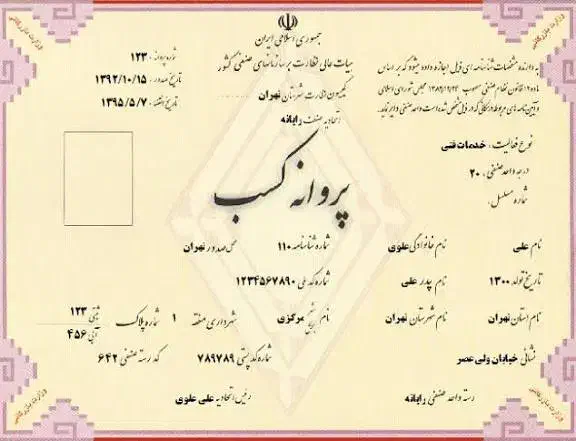 جمهوری اسلامی ایران
هیات عالی نظارت بر سازمانهای صنفی کشور
کمیسیون نظارت شهرستان تهران
اتحادیه صنف رایانه
شماره پروانه : ۱۲۳
تاریخ صدور : ۱۳۹۲/۱۰/۱۵
تاریخ انقضاء : ۱۳۹۵/۵/۷
به دارنده مشخصات شناسنامه ای ذیل اجازه داده میشود که بر اساس
ماده ۱۲ قانون نظام صنفی مصوب ۱۳۸۲/۱۲/۲۴ مجلس شورای اسلامی
و آیین نامه های مربوطه در مکانی که در ذیل مشخص شده است واحد صنفی دایر نماید.
نوع فعالیت : خدمات فنی
درجه واحد صنفی : ۲۰
شماره مسلسل :
پروانه کسب
نام علی نام خانوادگی علوی شماره شناسنامه ۱۱۰ محل صدور تهران
تاریخ تولد ۱۳۰۰ نام پدر علی شماره کد ملی ۱۲۳۴۵۶۷۸۹۰
نام استان تهران نام شهرستان تهران نام بخش شهر مرکزی شهرداری منطقه ۱ شماره پلاک ثبتی ۱۲۳
آبی ۴۵۶
نشانی خیابان ولی عصر شماره کد پستی ۷۸۹۷۸۹ کد رسته صنفی ۶۴۲
رسته واحد صنفی رایانه رئیس اتحادیه علی علوی
وزارت بازرگانی
وزارت بازرگانی
وزارت بازرگانی
وزارت بازرگانی